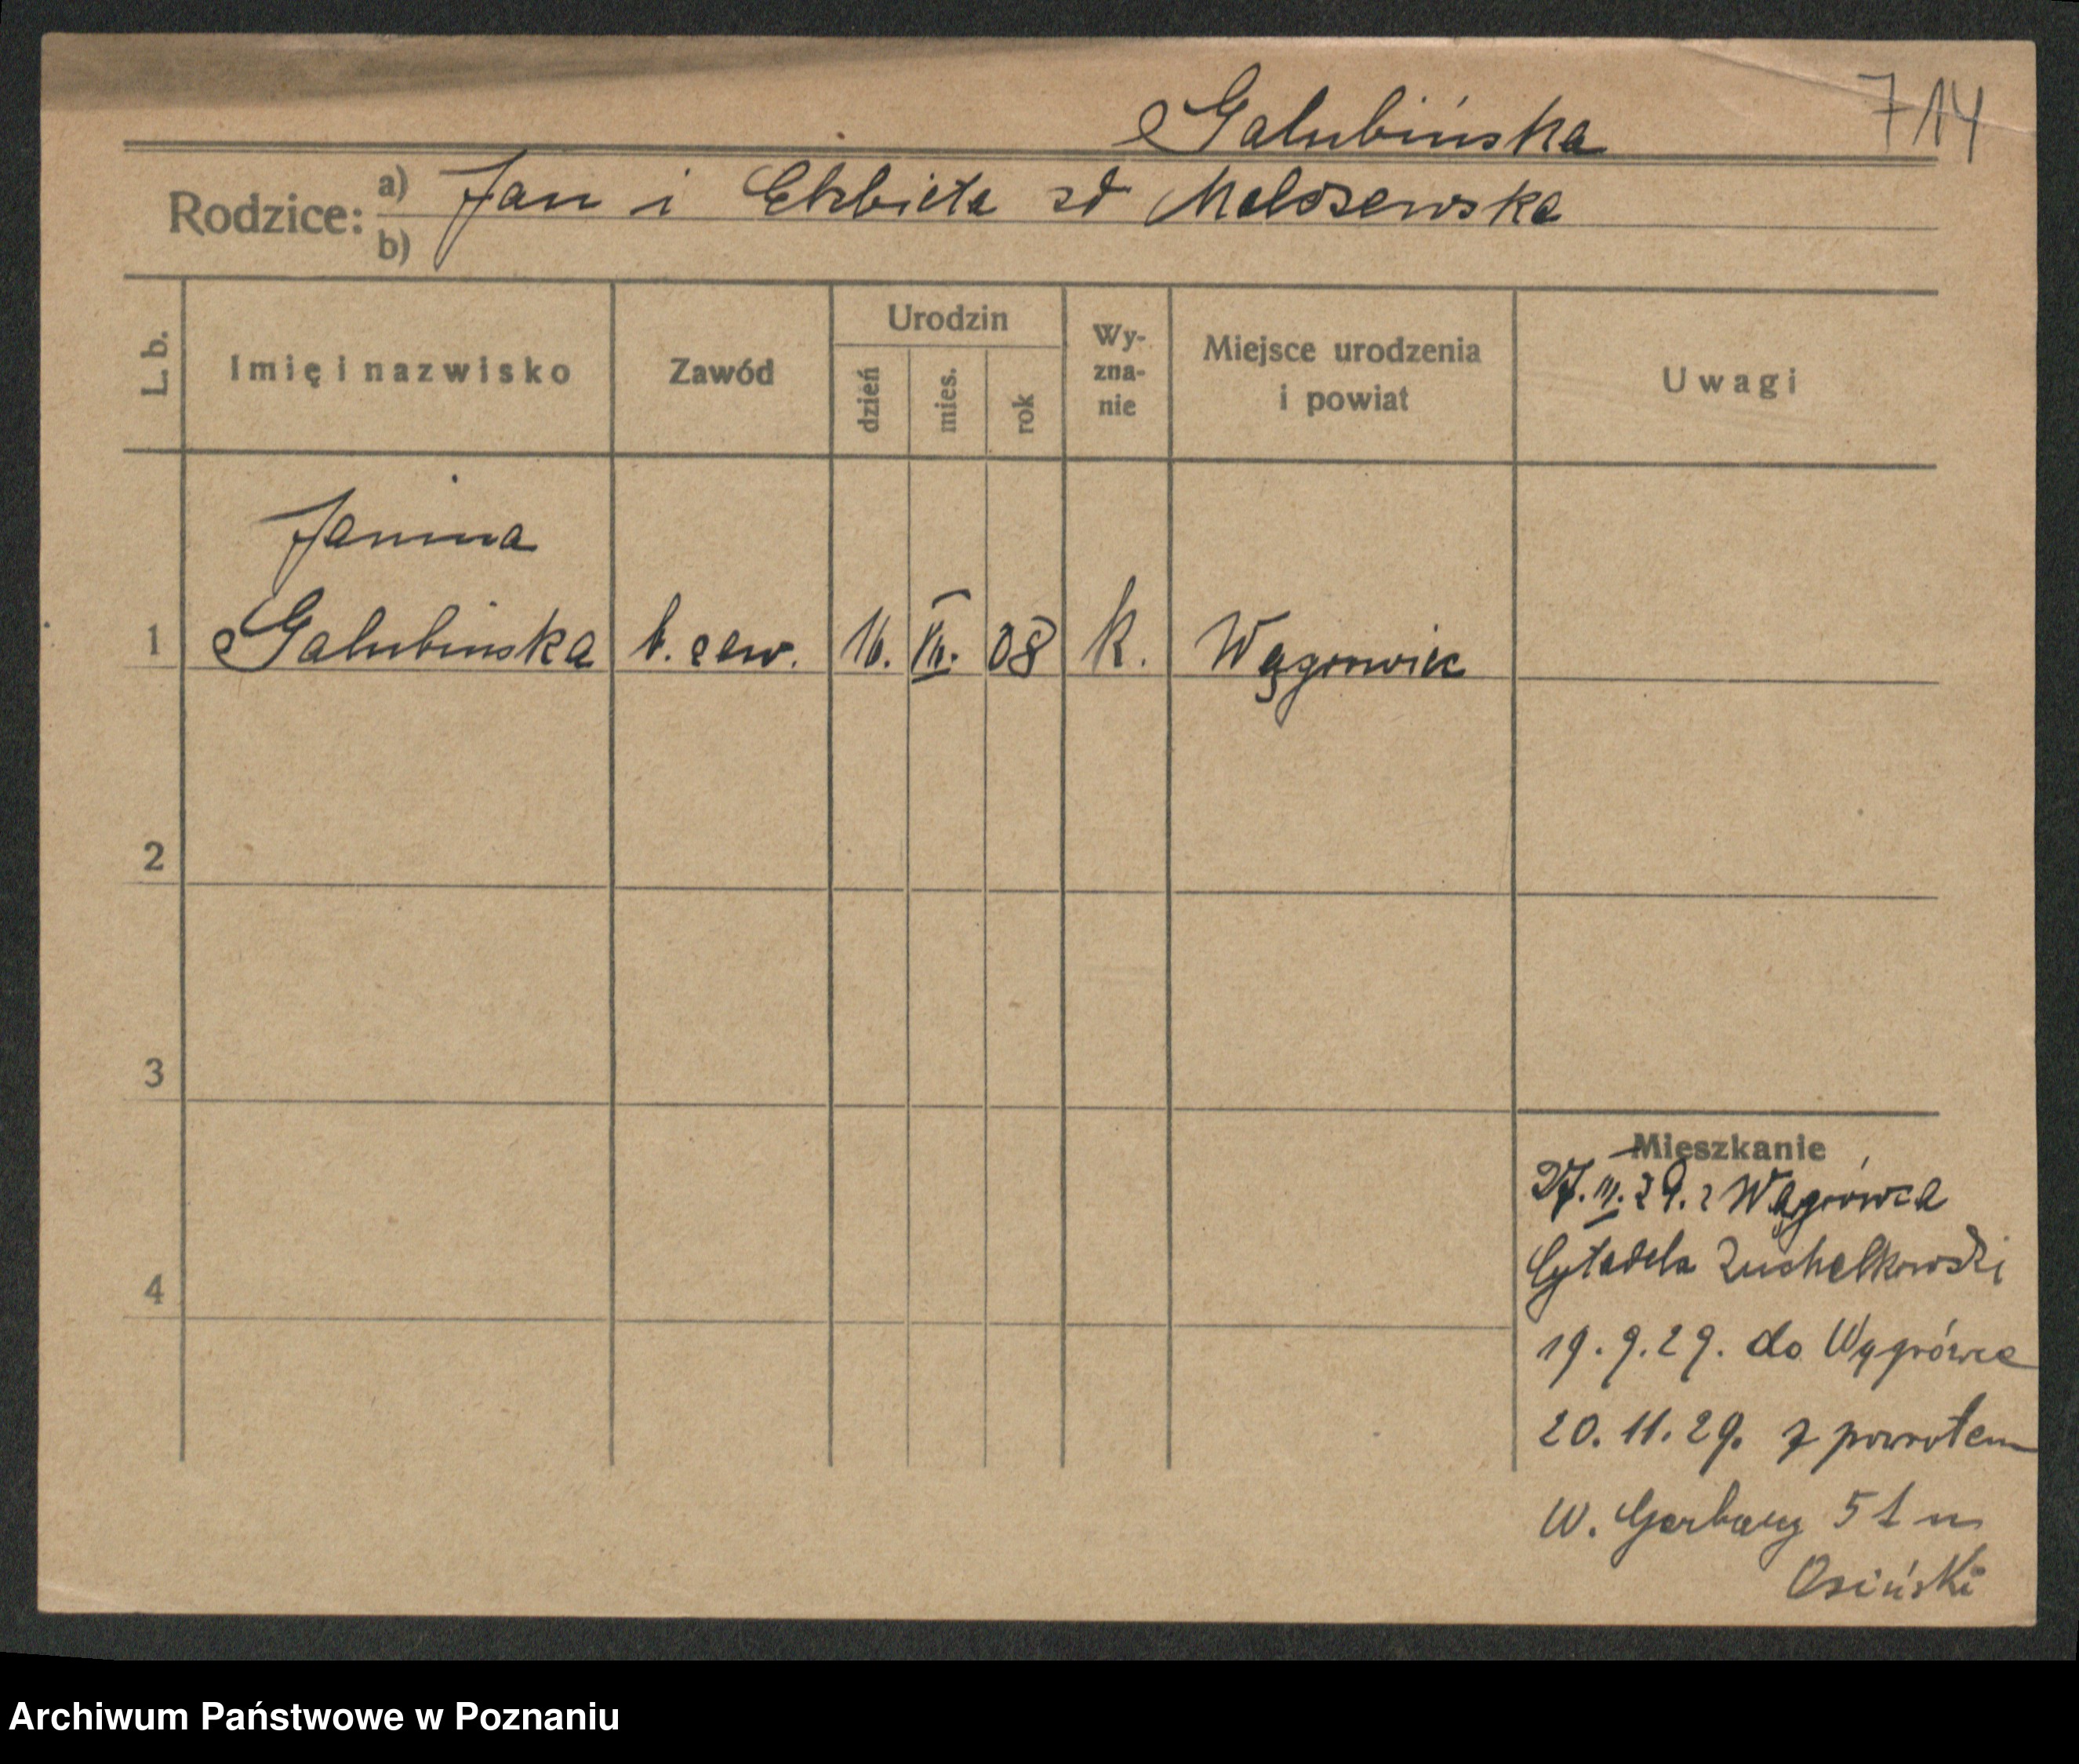 Galubińska 714
Rodzice: a) Jan i Elżbieta zd
b)
L. b. Imię i nazwisko Zawód Urodzin dzień mies. rok Wy-zna-nie Miejsce urodzenia i powiat Uwagi
Janina
1 Galubińska b. zaw. 16. 08 k. Wągrowiec
2
3
4
Mieszkanie
27. III. 29. z Wągrówca
Cytadela
19. 9. 29. do Wągrówca
20. 11. 29. z powrotem
W. Garbary 51 u
Osiński
Archiwum Państwowe w Poznaniu